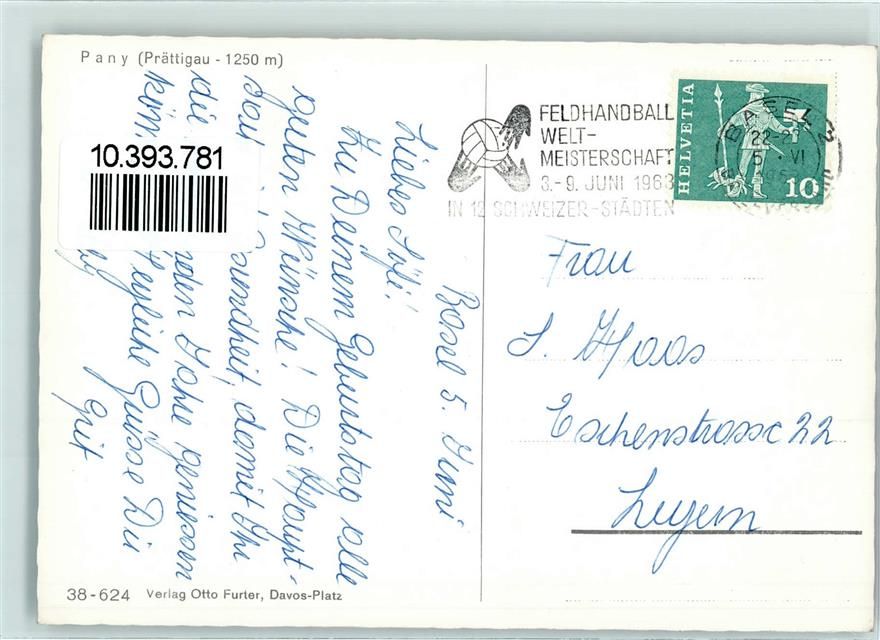 Pany (Prättigau - 1250 m)
10.393.781
FELDHANDBALL
WELT-
MEISTERSCHAFT
3.-9. JUNI 1963
IN 12 SCHWEIZER-STÄDTEN
HELVETIA
10
BASEL 2
22-23
5. VI
Basel 5. Juni
Liebes Sofi!
Zu Deinem Geburtstag alle
guten Wünsche! Die Haupt-
Gesundheit, damit Ihr
die Jahre geniessen
könn
Herzliche Grüsse Dir
Grit
Frau
S. Haas
Eschenstrasse 22
Luzern
38-624 Verlag Otto Furter, Davos-Platz